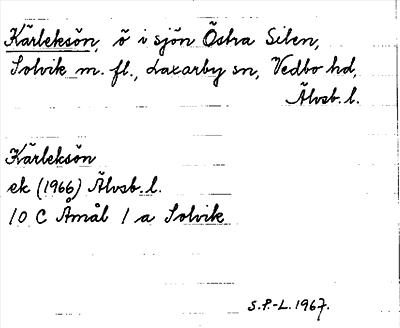 Kärleksön, ö i sjön Östra Silen,
Solvik m. fl., Laxarby sn, Vedbo hd,
Älvsb. l.
Kärleksön
ek (1966) Älvsb. l.
10 C Åmål 1 a Solvik
S.P.-L. 1967.